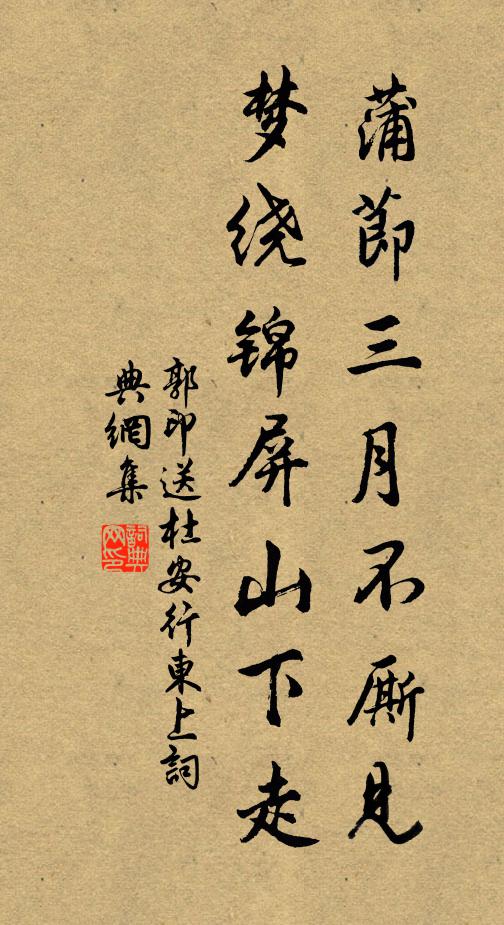 蒲節三月不厮見
梦绕锦屏山下走
郭印送杜安行東上詞
典網集
詞典網印